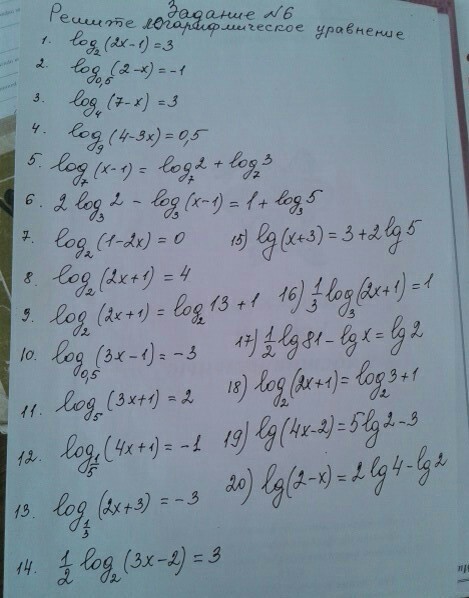 Задание №6
Решите логарифмическое уравнение
1. log₂(2x-1)=3
2. log₀,₅(2-x)=-1
3. log₄(7-x)=3
4. log₉(4-3x)=0,5
5. log₇(x-1)=log₇2+log₇3
6. 2log₃2-log₃(x-1)=1+log₃5
7. log₂(1-2x)=0
8. log₂(2x+1)=4
9. log₂(2x+1)=log₂13+1
10. log₀,₅(3x-1)=-3
11. log₅(3x+1)=2
12. log_{1/5}(4x+1)=-1
13. log_{1/3}(2x+3)=-3
14. 1/2 log₂(3x-2)=3
15) lg(x+3)=3+2lg5
16) 1/3 log₃(2x+1)=1
17) 1/2 lg81-lgx=lg2
18) log₂(2x+1)=log₂3+1
19) lg(4x-2)=5lg2-3
20) lg(2-x)=2lg4-lg2